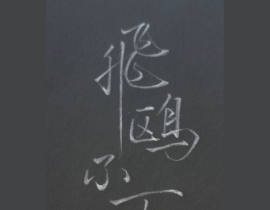 飛鷗不